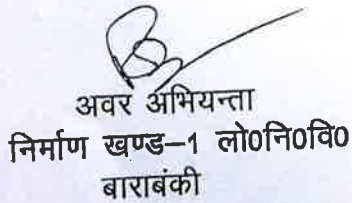 अवर अभियन्ता
निर्माण खण्ड–1 लो0नि0वि0
बाराबंकी